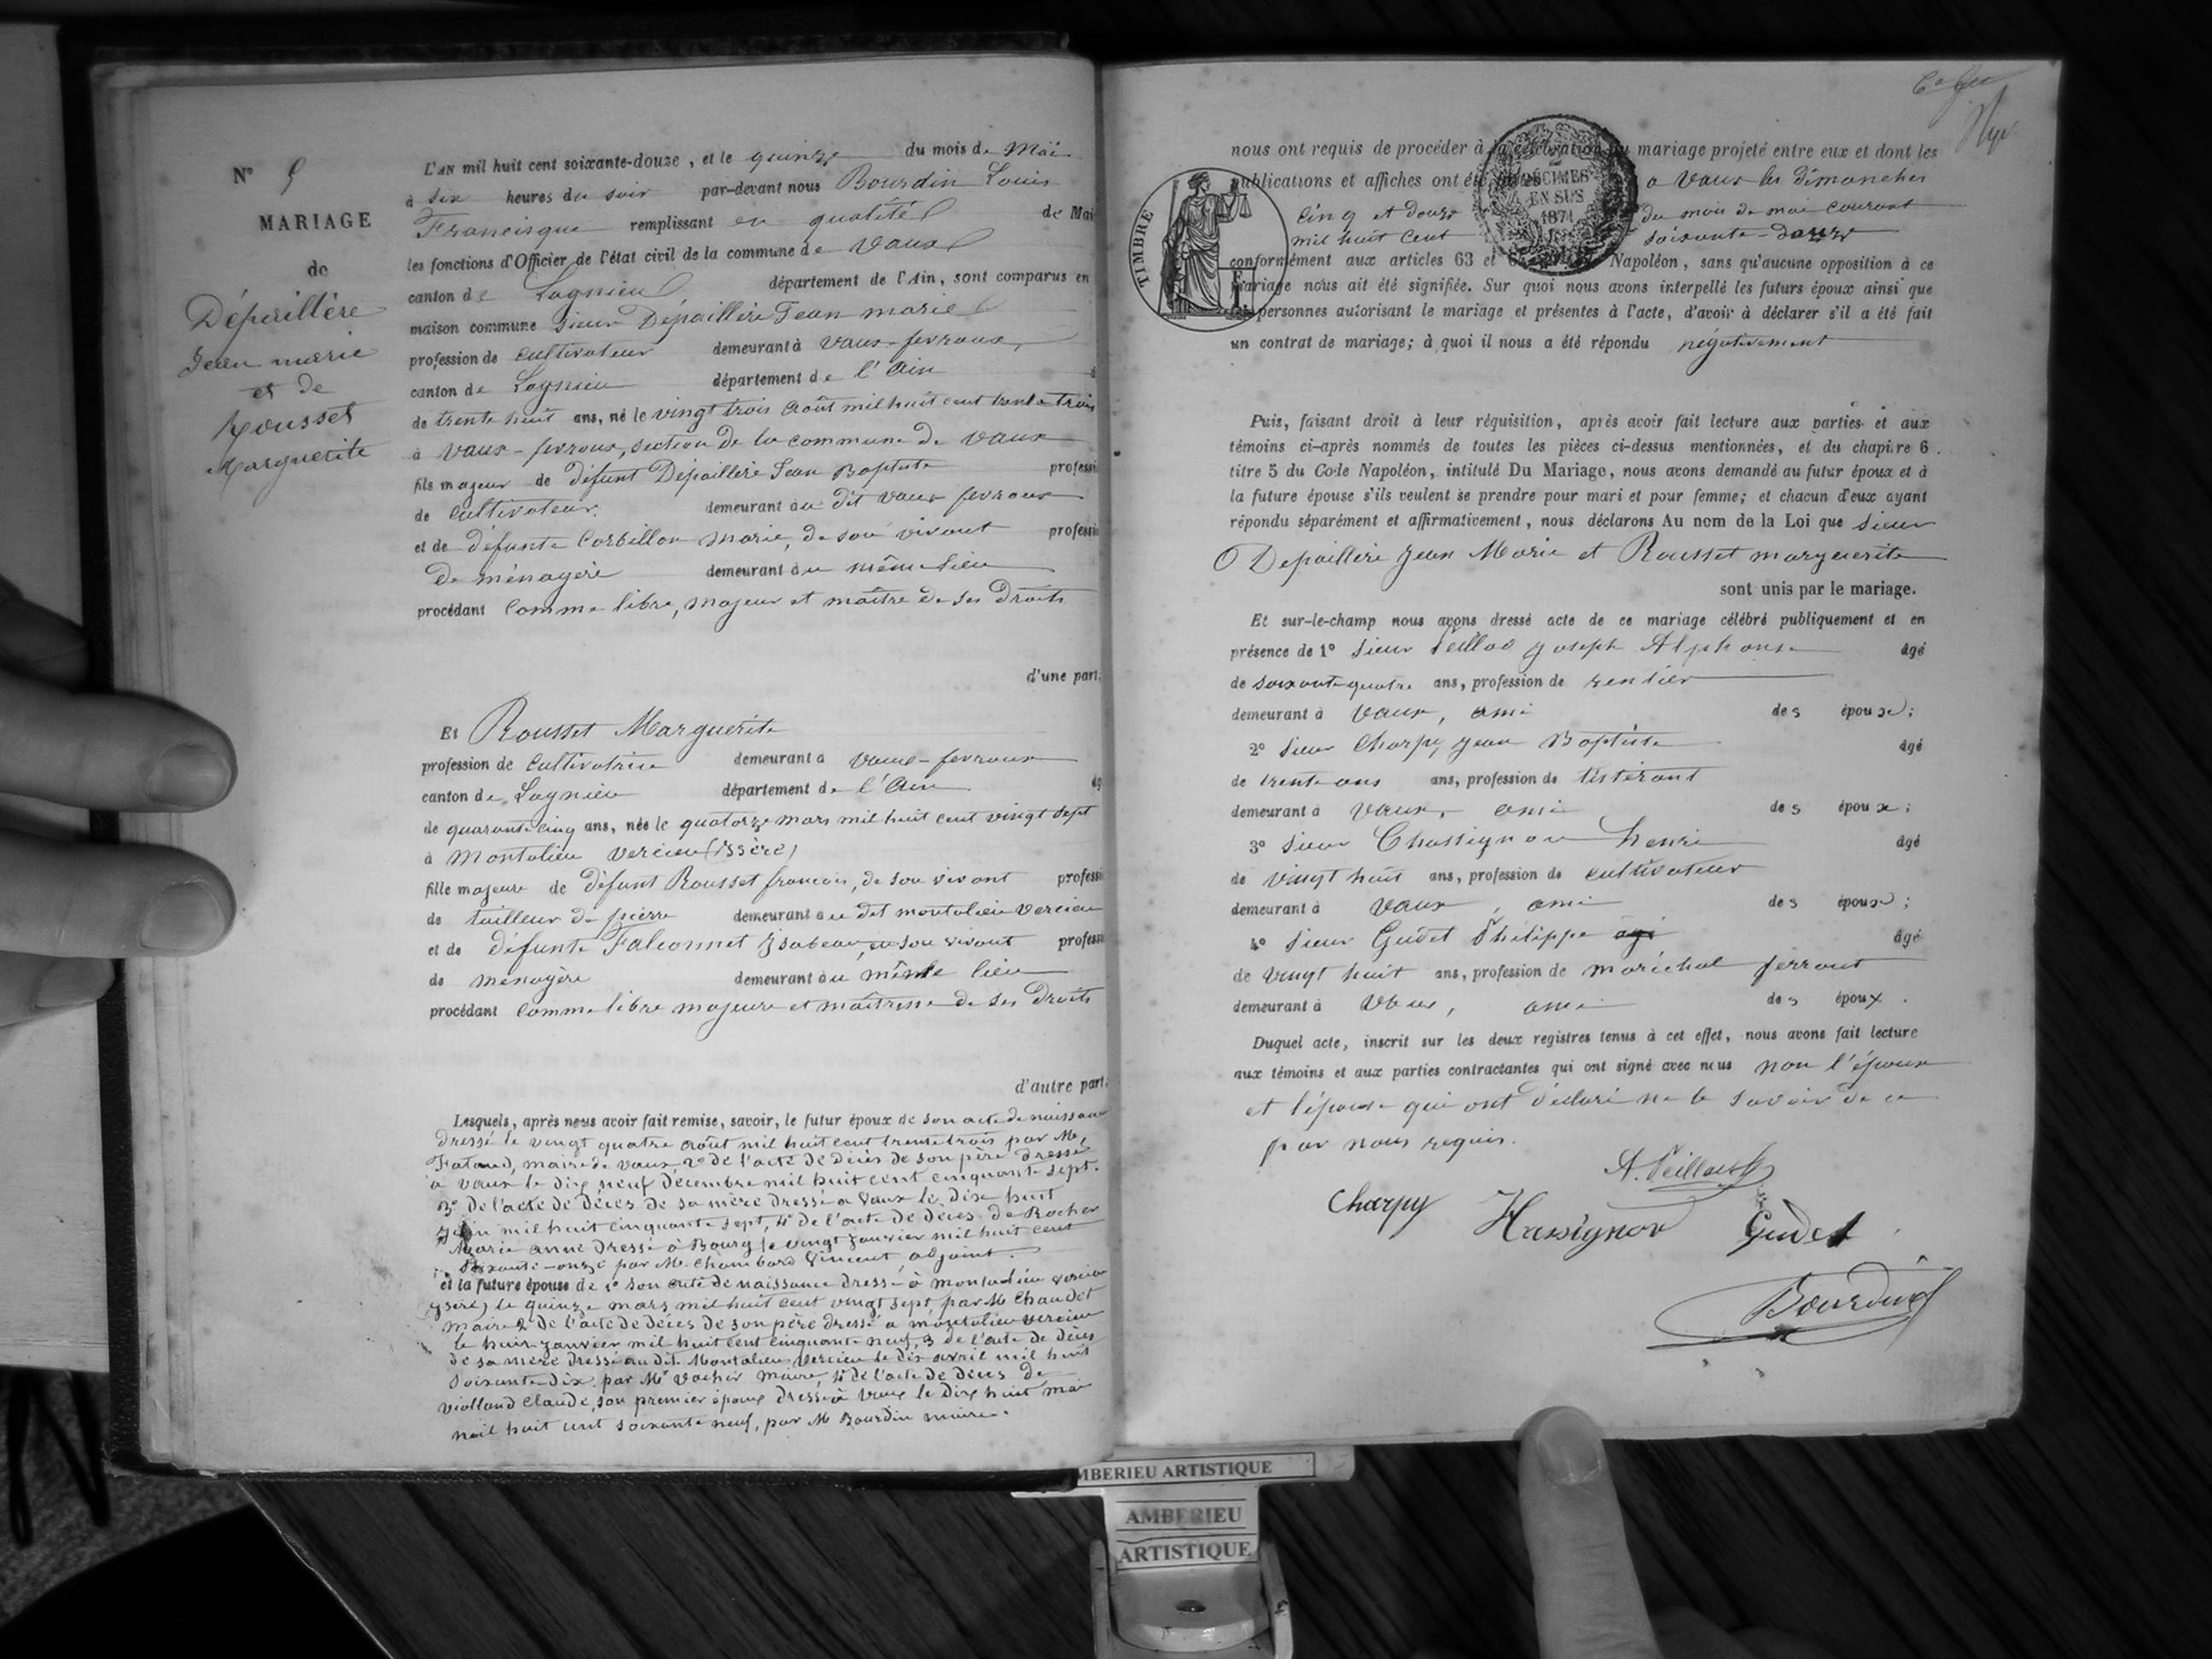 N° 5
MARIAGE
de
Dépaillère
Jean marie
et de
Rousset
Marguerite
L'AN mil huit cent soixante-douze, et le quinze du mois de Mai
à six heures du soir par-devant nous Bourdin Louis
Francisque remplissant en qualité de Mai
les fonctions d'Officier de l'état civil de la commune de Vaux
canton de Lagnieu département de l'Ain, sont comparus en
maison commune Sieur Dépaillère Jean marie
profession de cultivateur demeurant à Vaux-fevroux,
canton de Lagnieu département de l'Ain
de trente huit ans, né le vingt trois août mil huit cent trente trois
à Vaux-fevroux, section de la commune de Vaux
fils majeur de défunt Dépaillère Jean Baptiste professi
de cultivateur. demeurant au dit Vaux fevroux
et de défunte Corbillon marie, de son vivant professi
de ménagère demeurant au même lieu
procédant comme libre, majeur et maître de ses droits
d'une part,
Et Rousset Marguerite
profession de cultivatrice demeurant à Vaux-fevroux
canton de Lagnieu département de l'Ain
de quarante cinq ans, née le quatorze mars mil huit cent vingt sept
à Montalieu Vercieu (Issère)
fille majeure de défunt Rousset francois, de son vivant professi
de tailleur de pierre demeurant au dit montalieu Vercieu
et de défunte Falconnet Isabeau, en son vivant professi
de ménagère demeurant au même lieu
procédant comme libre majeure et maîtresse de ses droits
d'autre part.
Lesquels, après nous avoir fait remise, savoir, le futur époux de son acte de naissance
dressé le vingt quatre août mil huit cent trente trois par Mr,
maire de Vaux, 2° de l'acte de décès de son père dressé
à Vaux le dix neuf décembre mil huit cent cinquante sept.
3° De l'acte de décès de sa mère dressé à Vaux le dix huit
Juin mil huit cinquante sept, 4° de l'acte de décès de Rocher
Marie anne dressé à Bourg le vingt janvier mil huit cent
soixante-onze par Mr. Chambard Vincent, adjoint.
et la future épouse de 1° son acte de naissance dressé à montalieu vercieu
ysère) le quinze mars mil huit cent vingt sept par M Chaudet
maire 2 de l'acte de décès de son père dressé à montalieu vercieu
le huit janvier mil huit cent cinquante neuf, 3 de l'acte de décès
de sa mère dressé au dit Montalieu Vercieu le dix avril mil huit
soixante dix par Mr Vacher maire, 4° de l'acte de décès de
violland Claude, son premier époux dressé à Vaux le dix huit mai
mil huit cent soixante neuf, par M Bourdin maire.
nous ont requis de procéder à la célébration du mariage projeté entre eux et dont les
publications et affiches ont été faites à Vaux les dimanches
cinq et douze du mois de mai courant
mil huit cent soixante-douze
conformément aux articles 63 et Napoléon, sans qu'aucune opposition à ce
mariage nous ait été signifiée. Sur quoi nous avons interpellé les futurs époux ainsi que
les personnes autorisant le mariage et présentes à l'acte, d'avoir à déclarer s'il a été fait
un contrat de mariage; à quoi il nous a été répondu négativement
TIMBRE
DÉCIMES
EN SUS
1871
Puis, faisant droit à leur réquisition, après avoir fait lecture aux parties et aux
témoins ci-après nommés de toutes les pièces ci-dessus mentionnées, et du chapitre 6
titre 5 du Code Napoléon, intitulé Du Mariage, nous avons demandé au futur époux et à
la future épouse s'ils veulent se prendre pour mari et pour femme; et chacun d'eux ayant
répondu séparément et affirmativement, nous déclarons Au nom de la Loi que Sieur
Depaillère Jean Marie et Rousset marguerite
sont unis par le mariage.
Et sur-le-champ nous avons dressé acte de ce mariage célébré publiquement et en
présence de 1° Sieur Joseph Alphonse âgé
de soixante quatre ans, profession de rentier
demeurant à Vaux, ami des époux;
2° Sieur Charpy Jean Baptiste âgé
de trente ans ans, profession de tisserant
demeurant à Vaux, ami des époux;
3° Sieur Chassignon henri âgé
de vingt huit ans, profession de cultivateur
demeurant à Vaux, ami des époux;
4° Sieur Gudet Philippe agé âgé
de vingt huit ans, profession de maréchal ferrant
demeurant à Vaux, ami des époux.
Duquel acte, inscrit sur les deux registres tenus à cet effet, nous avons fait lecture
aux témoins et aux parties contractantes qui ont signé avec nous non l'époux
et l'épouse qui ont déclaré ne le savoir de ce
par nous requis.
Charpy Hassignon Gudet
Bourdin
MBERIEU ARTISTIQUE
AMBERIEU
ARTISTIQUE